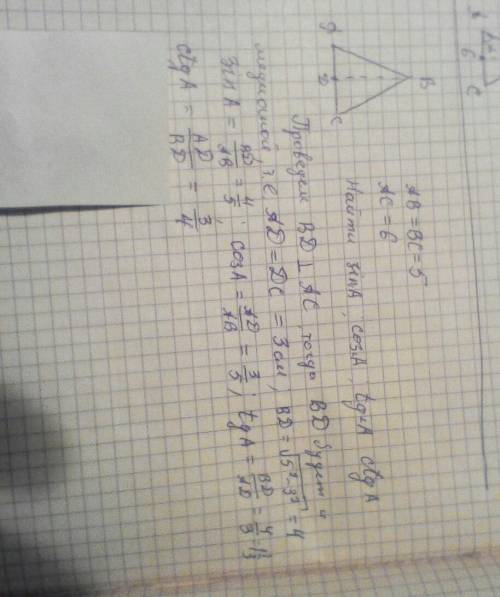 A
6
C
B
A
D
C
AB = BC = 5
AC = 6
Найти sinA, cosA, tgA ctgA
Проведем BD ⊥ AC, тогда BD будет и
медианой, т.е AD = DC = 3 см, BD = √5²-3² = 4
sinA = BD/AB = 4/5; cosA = AD/AB = 3/5; tgA = BD/AD = 4/3 = 1 1/3
ctgA = AD/BD = 3/4